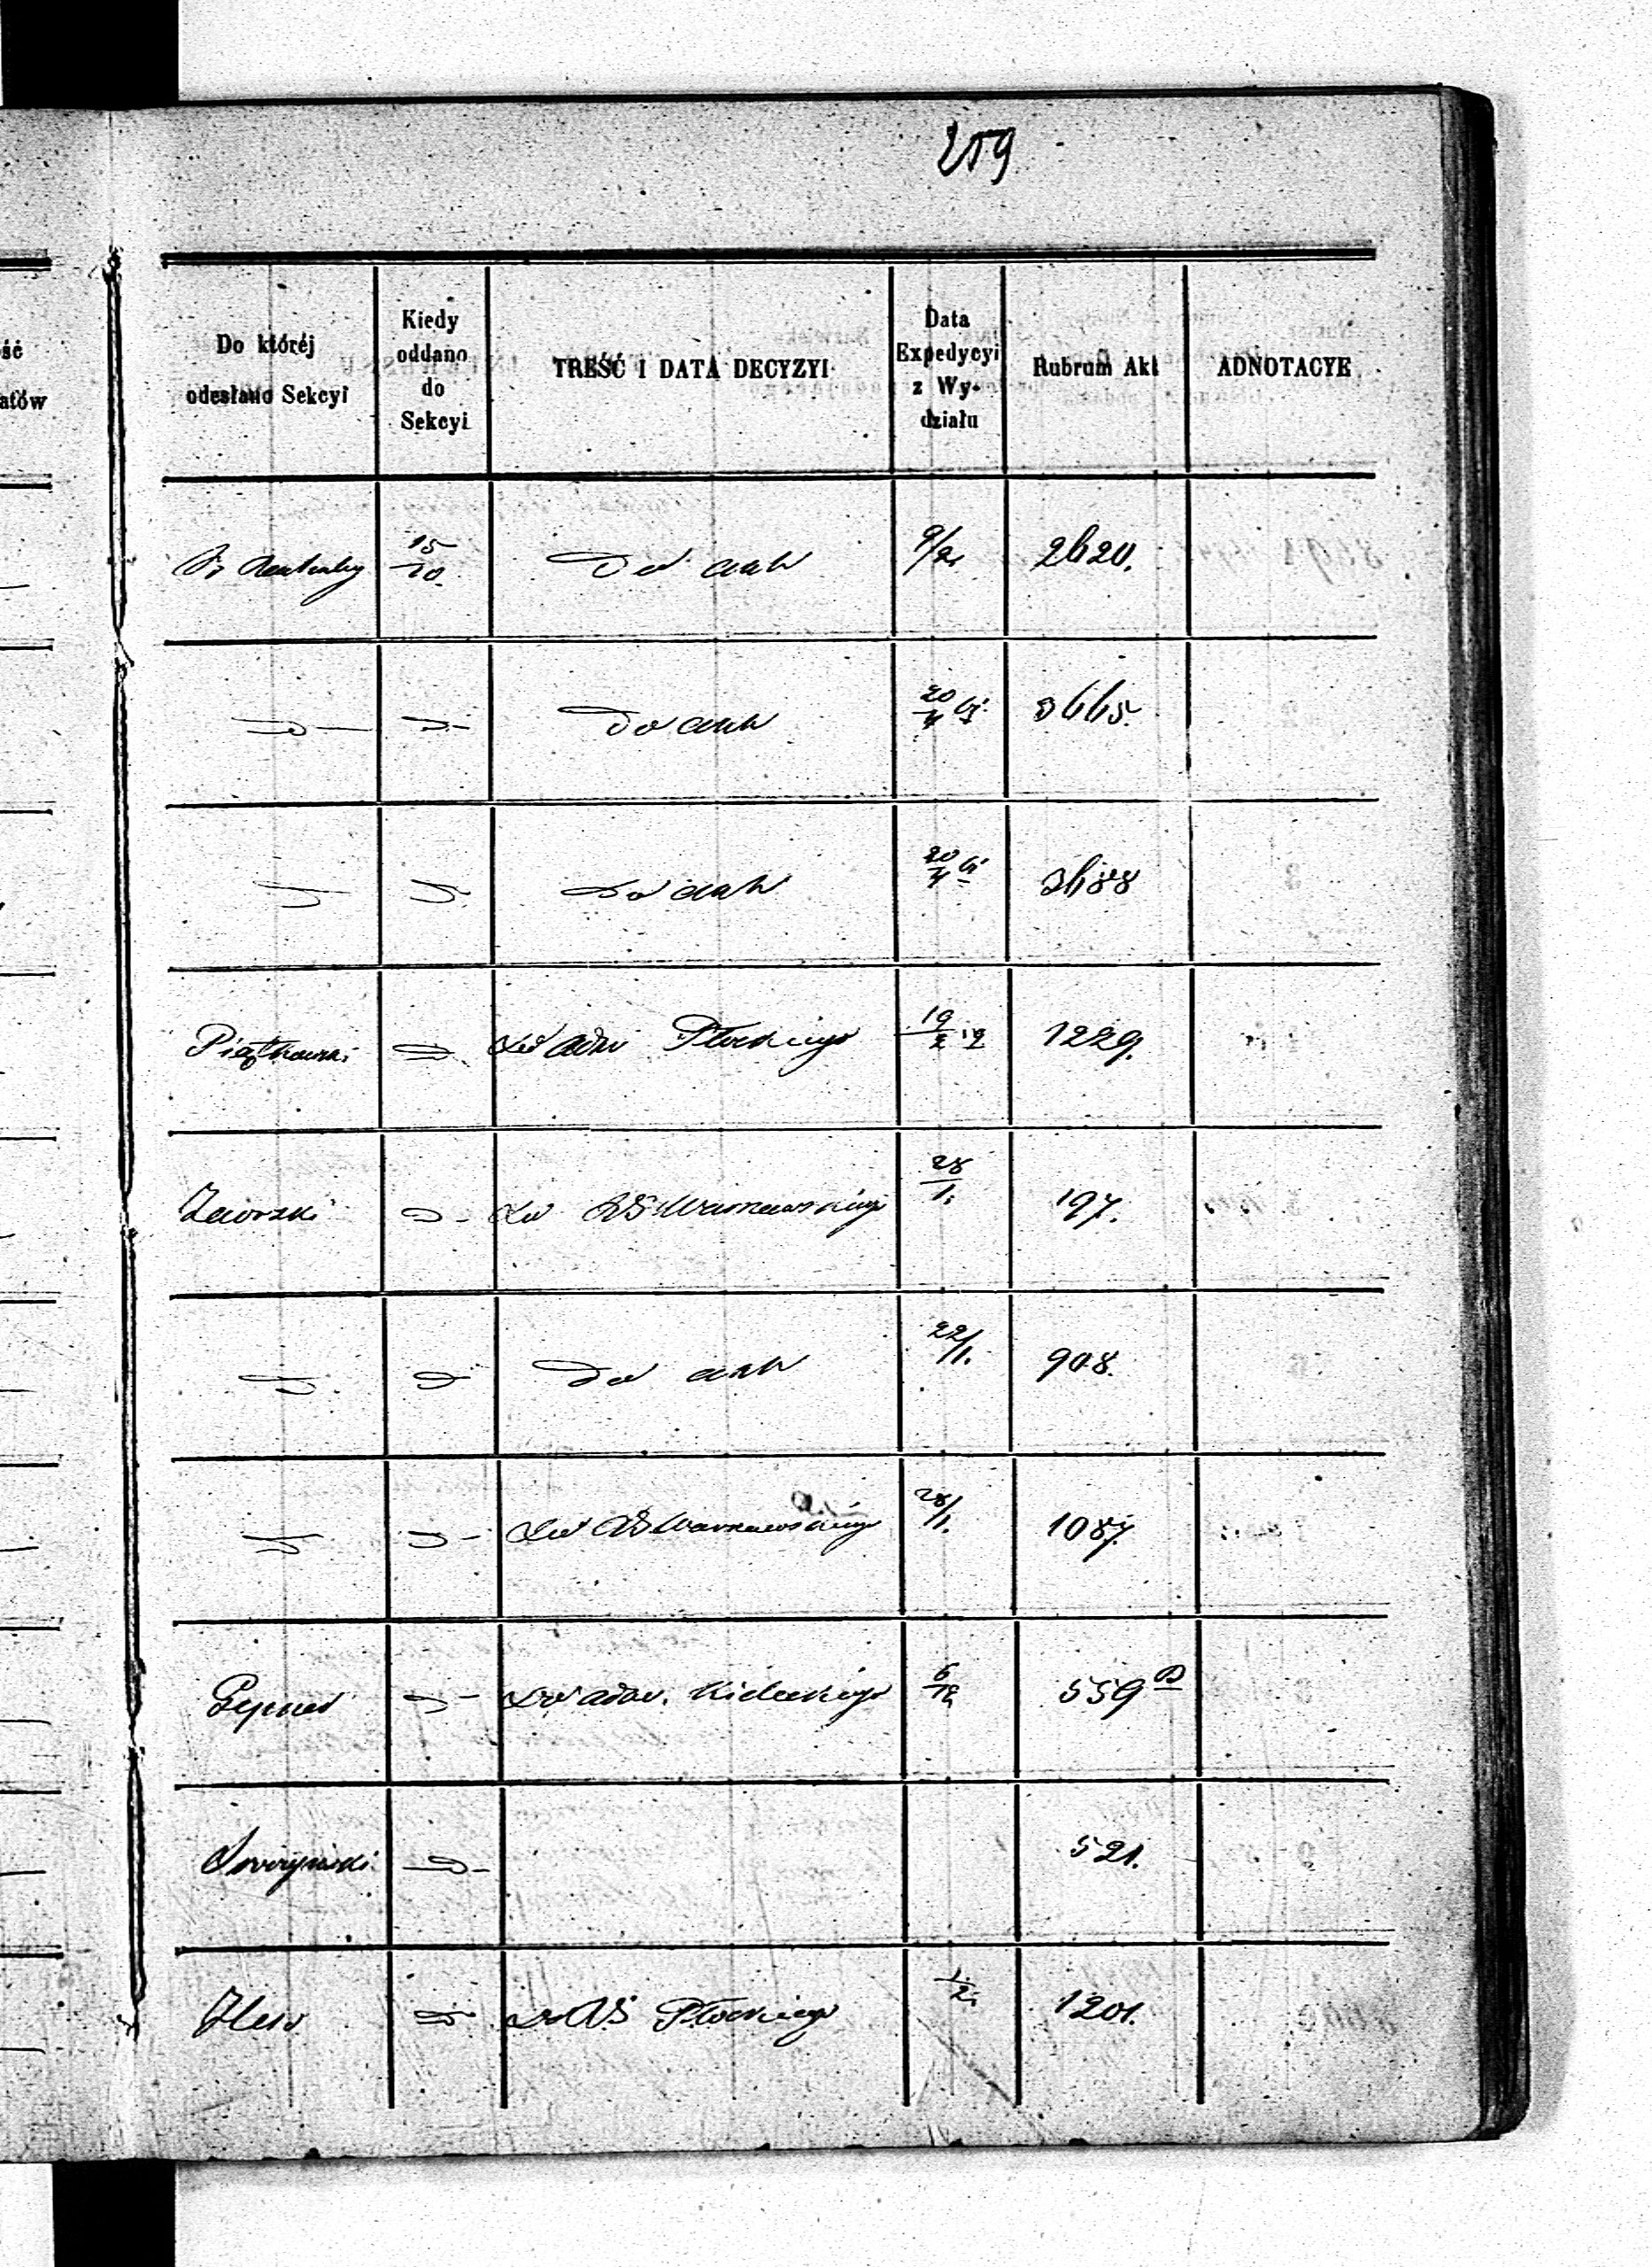 259
ść
atów
Do któréj
odesłano Sekcyi
Kiedy
oddano
do
Sekcyi
TREŚĆ I DATA DECYZYI
Data
Expedycyi
z Wy-
działu
Rubrum Akt
ADNOTACYE
15/10 Do akt 9/2 2620.
Do akt 20/4 3665.
Do akt 20/4 3688
Piątkowski Do Adm Płockiego 19/2 1229.
Jaworski Do RS Warszawskiego 28/1. 197.
Do akt 22/1. 908.
Do RS Warszawskiego 28/1. 1087.
Do Adm. Kieleckiego 6/12 559 B
521.
Do RS Płockiego 1/2. 1201.